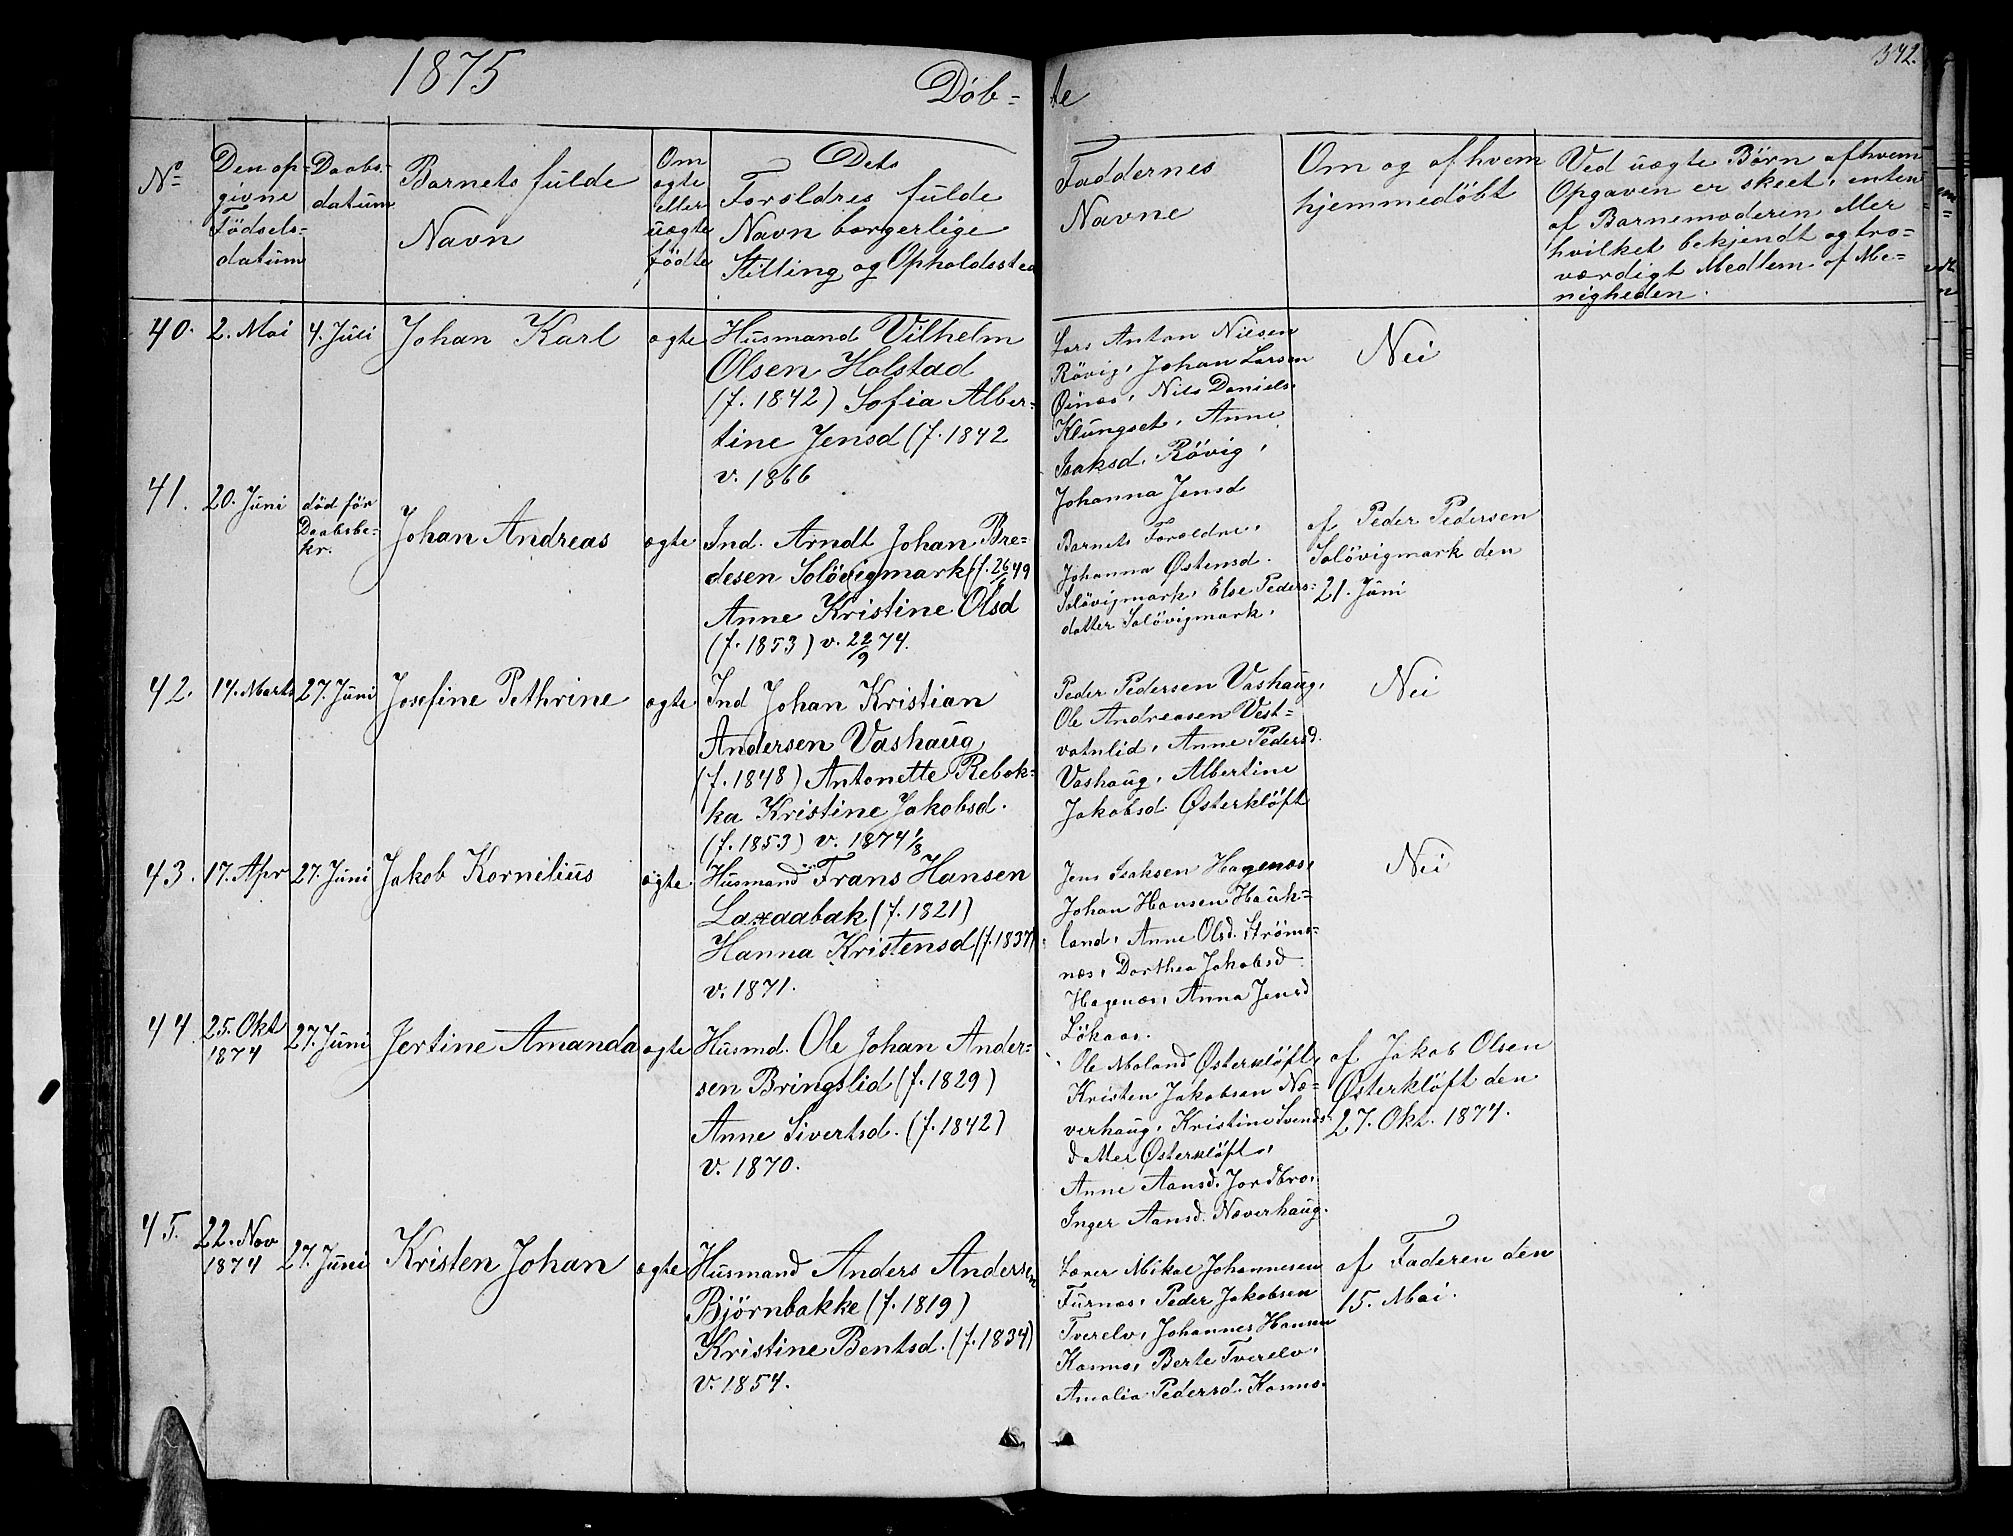 1875
Döb-
te
342.
No
Den op-
givne
Födsels-
datum
Daabs-
datum
Barnets fulde
Navn
Om
ægte
eller
uægte
födte
Dets
Forældres fulde
Navn borgerlige
Stilling og Opholdssted
Faddernes
Navne
Om og af hvem
hjemmedöbt
Ved uægte Börn af hvem
Opgaven er skeet, enten
af Barnemoderen eller
hvilket bekjendt og tro-
værdigt Medlem af Me-
nigheden.
40.
2. Mai
4. Juli
Johan Karl
ægte
Husmand Vilhelm
Olsen Holstad
(f. 1842) Sofia Alber-
tine Jensd (f. 1842
v. 1866
Lars Anton Nilsen
Røvig, Johan Larsen
Øinæs, Nils Daniels.
Klungset, Anne
Isaksd. Røvig,
Johanna Jensd
Nei
41.
20. Juni
död för
Daabsbe-
kr.
Johan Andreas
ægte
Ind. Arndt Johan Bre-
desen Solövigmark (f. 26/6 49
Anne Kristine Olsd
(f. 1853) v. 22/9 74.
Barnets Forældre,
Johanna Østensd.
Solövigmark, Else Peders-
datter Solövigmark.
af Peder Pedersen
Solövigmark den
21. Juni
42.
14. Marts
27. Juni
Josefine Pethrine
ægte
Ind Johan Kristian
Andersen Vashaug
(f. 1848) Antonette Rebek-
ka Kristine Jakobsd.
(f. 1853) v. 1874 1/8
Peder Pedersen Vashaug,
Ole Andreasen Vest-
vatnlid, Anne Pedersd.
Vashaug, Albertine
Jakobsd. Østerklöft
Nei
43.
17. Apr
27. Juni
Jakob Kornelius
ægte
Husmand Frans Hansen
Laxaabak (f. 1821)
Hanna Kristensd (f. 1837)
v. 1871.
Jens Isaksen Hagenæs,
Johan Hansen Hauk-
land, Anne Olsd. Ströms-
næs, Dorthea Jakobsd
Hagenæs, Anna Jensd
Løkaas.
Nei
44
25. Okt
1874
27. Juni
Jertine Amanda
ægte
Husmd. Ole Johan Ander-
sen Bringslid (f. 1829)
Anne Sivertsd. (f. 1842)
v. 1870.
Ole Moland Østerklöft,
Kristen Jakobsen Næ-
verhaug, Kristine Svends-
datter Østerklöft,
Anne Aansd. Jordbro,
Inger Aansd. Næverhaug.
af Jakob Olsen
Østerklöft den
27. Okt. 1874.
45.
22. Nov
1874
27. Juni
Kristen Johan
ægte
Husmand Anders Andersen
Björnbakke (f. 1819)
Kristine Bentsd. (f. 1834)
v. 1854.
Lærer Mikal Johannesen
Furnæs, Peder Jakobsen
Tverelv, Johannes Hansen
Kosmo, Berte Tverelv,
Amalia Pedersd. Kosmo.
af Faderen den
15. Mai.